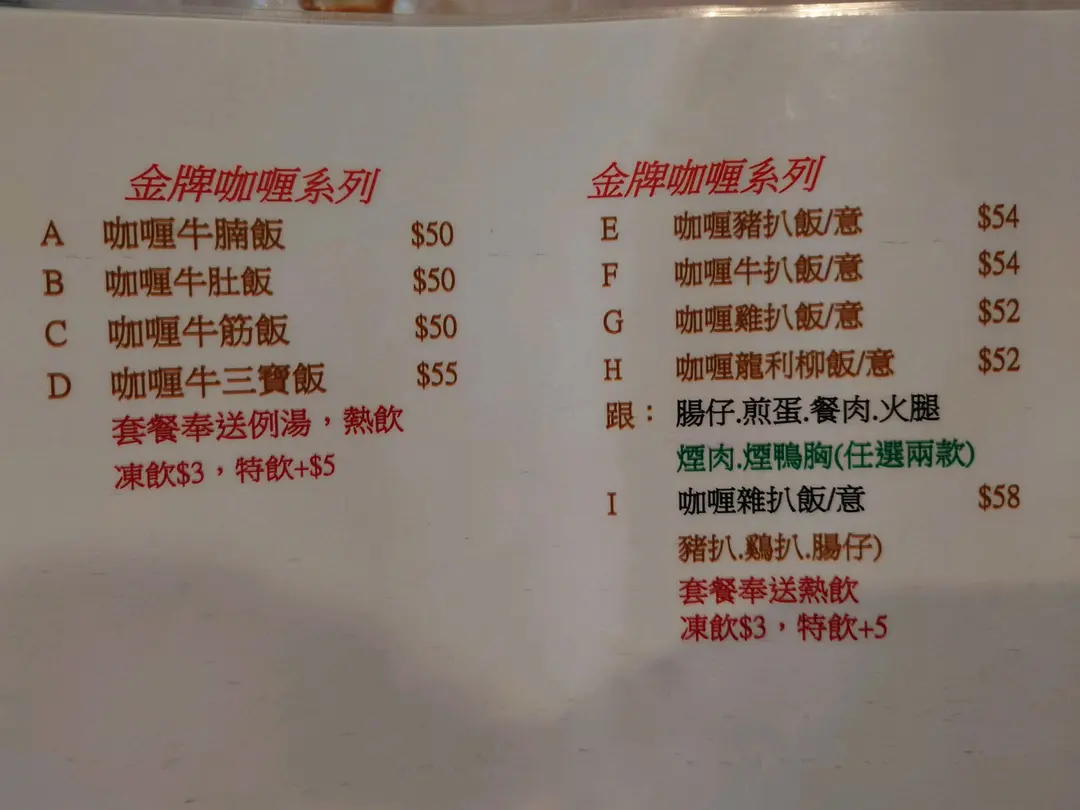 金牌咖喱系列
A 咖喱牛腩飯 $50
B 咖喱牛肚飯 $50
C 咖喱牛筋飯 $50
D 咖喱牛三寶飯 $55
套餐奉送例湯，熱飲
凍飲$3，特飲+$5
金牌咖喱系列
E 咖喱豬扒飯/意 $54
F 咖喱牛扒飯/意 $54
G 咖喱雞扒飯/意 $52
H 咖喱龍利柳飯/意 $52
跟： 腸仔.煎蛋.餐肉.火腿
煙肉.煙鴨胸(任選兩款)
I 咖喱雜扒飯/意 $58
豬扒.鷄扒.腸仔)
套餐奉送熱飲
凍飲$3，特飲+5